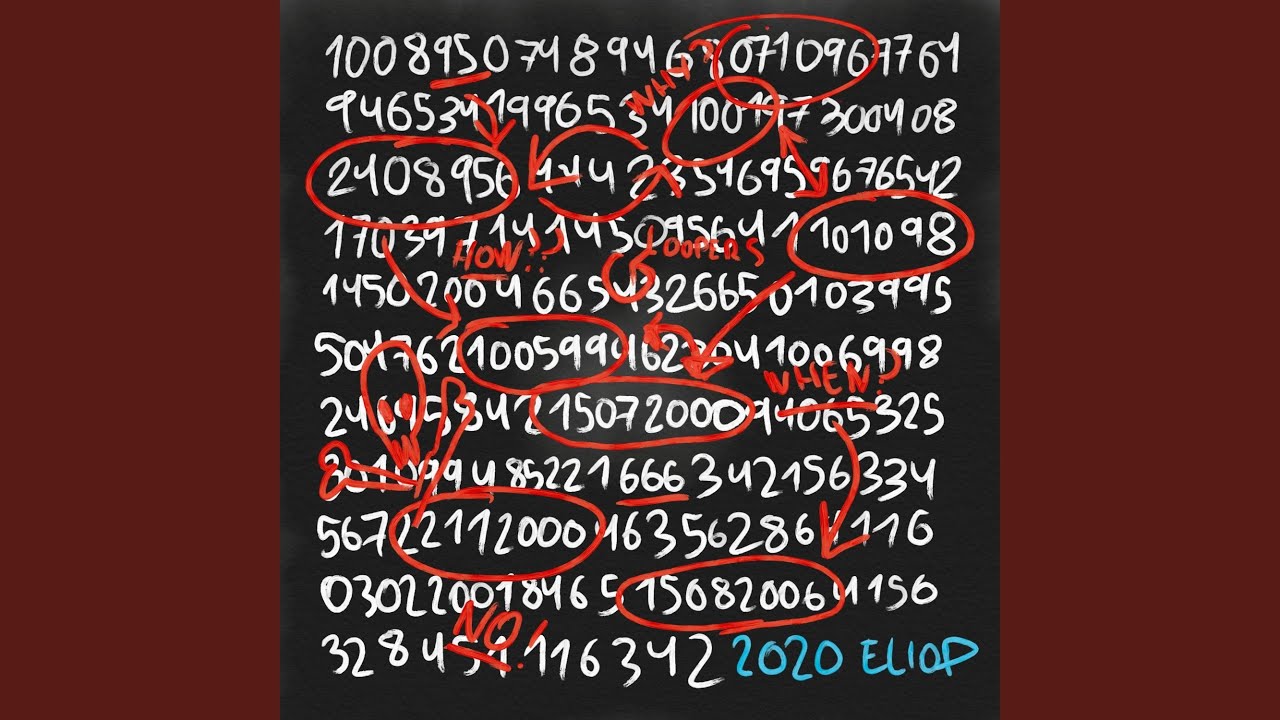 10089507489468 0710967764
WHY?
94653419965341001973004 08
2408956 444 2354695 9676542
17039714145095641 1101098
HOW??
LOOPERS
1450200466543266501039 95
504762100599462304 1006998
WHEN?
246958421507200094065325
3010994 85221666 342156334
56722112000463562864116
030220018465150820064156
NO!
328451116342 2020 ELIOP